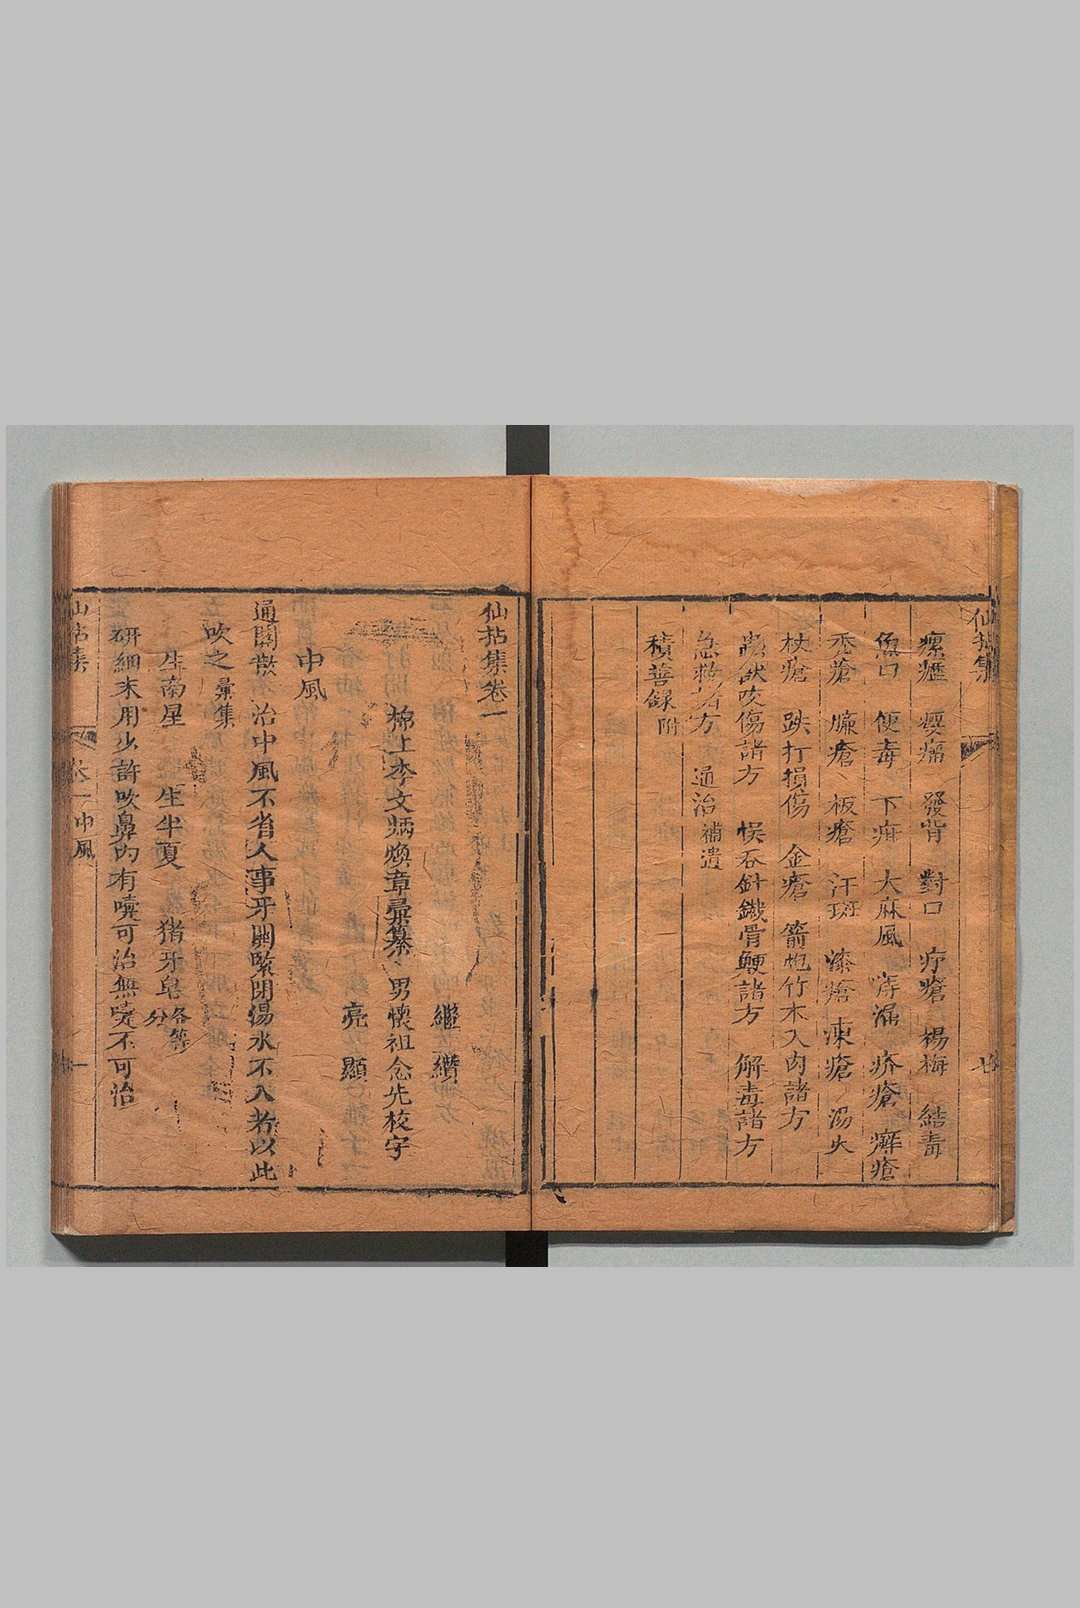 仙拈集
七
瘰癧 癭瘤 發背 對口 疔瘡 楊梅 結毒
魚口 便毒 下疳 大麻風 痔漏 疥瘡 癬瘡
禿瘡 臁瘡 板瘡 汗斑 漆瘡 凍瘡 湯火
杖瘡 跌打損傷 金瘡 箭炮竹木入肉諸方
蟲獸咬傷諸方 悞吞針鐵骨鯁諸方 解毒諸方
急救諸方 通治 補遺
積善錄 附
仙拈集卷一
繼纘
綿上李文炳煥章彙纂 男懷祖念先校字
亮顯
中風
通關散 治中風不省人事牙關緊閉湯水不入者以此
吹之 彙集
生南星 生半夏 猪牙皂 各等分
研細末用少許吹鼻內有嚏可治無嚏不可治
仙拈集 卷一中風 一